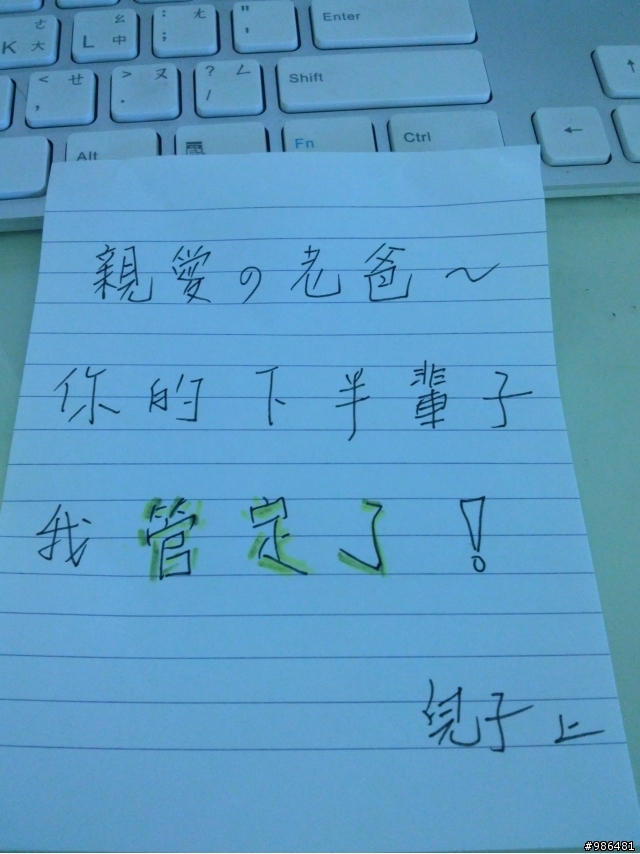 ㄜ ㄠ ㄤ " Enter
K ㄜ 大 L ㄠ 中 : ; ㄤ " '
< ㄝ , > ㄡ . ? ㄥ / Shift ↑
Alt Fn Ctrl ←
親愛の老爸~
你的下半輩子
我管定了!
兒子上
#986481